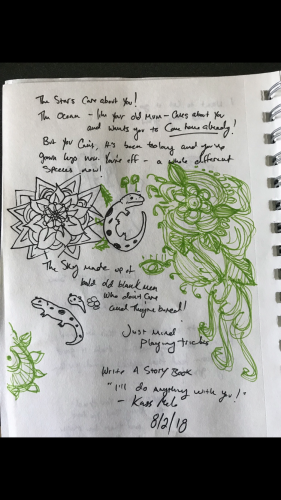 The Stars Care about You!
The Ocean - like your old Mum - Cares about You
and wants you to Come home already!
But you Cant, it's been too long and you've
grown legs now. You're off - a whole different
Species now!
The Sky made up of
bald old black men
who dont Care
and They're Unreal!
Just Mind
Playing tricks
Write A Story Book
"I'll do anything with you!"
- Kass
8/2/18